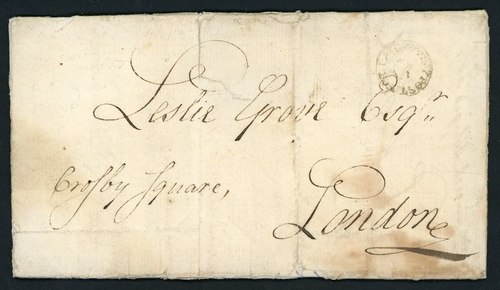 Leslie Grove Esqr.
Crosby Square,
London